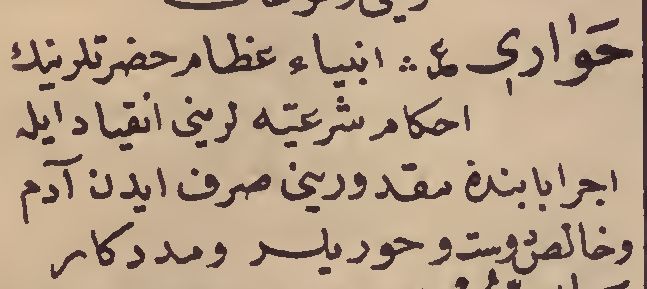 حَوَاری ع ∴ انبیاء عظام حضرتلرینك
احكام شرعیّه لرینی انقیاد ایله
اجرا بابنده مقدورینی صرف ایدن آدم
وخالص دوست و حوریلر ومددكار